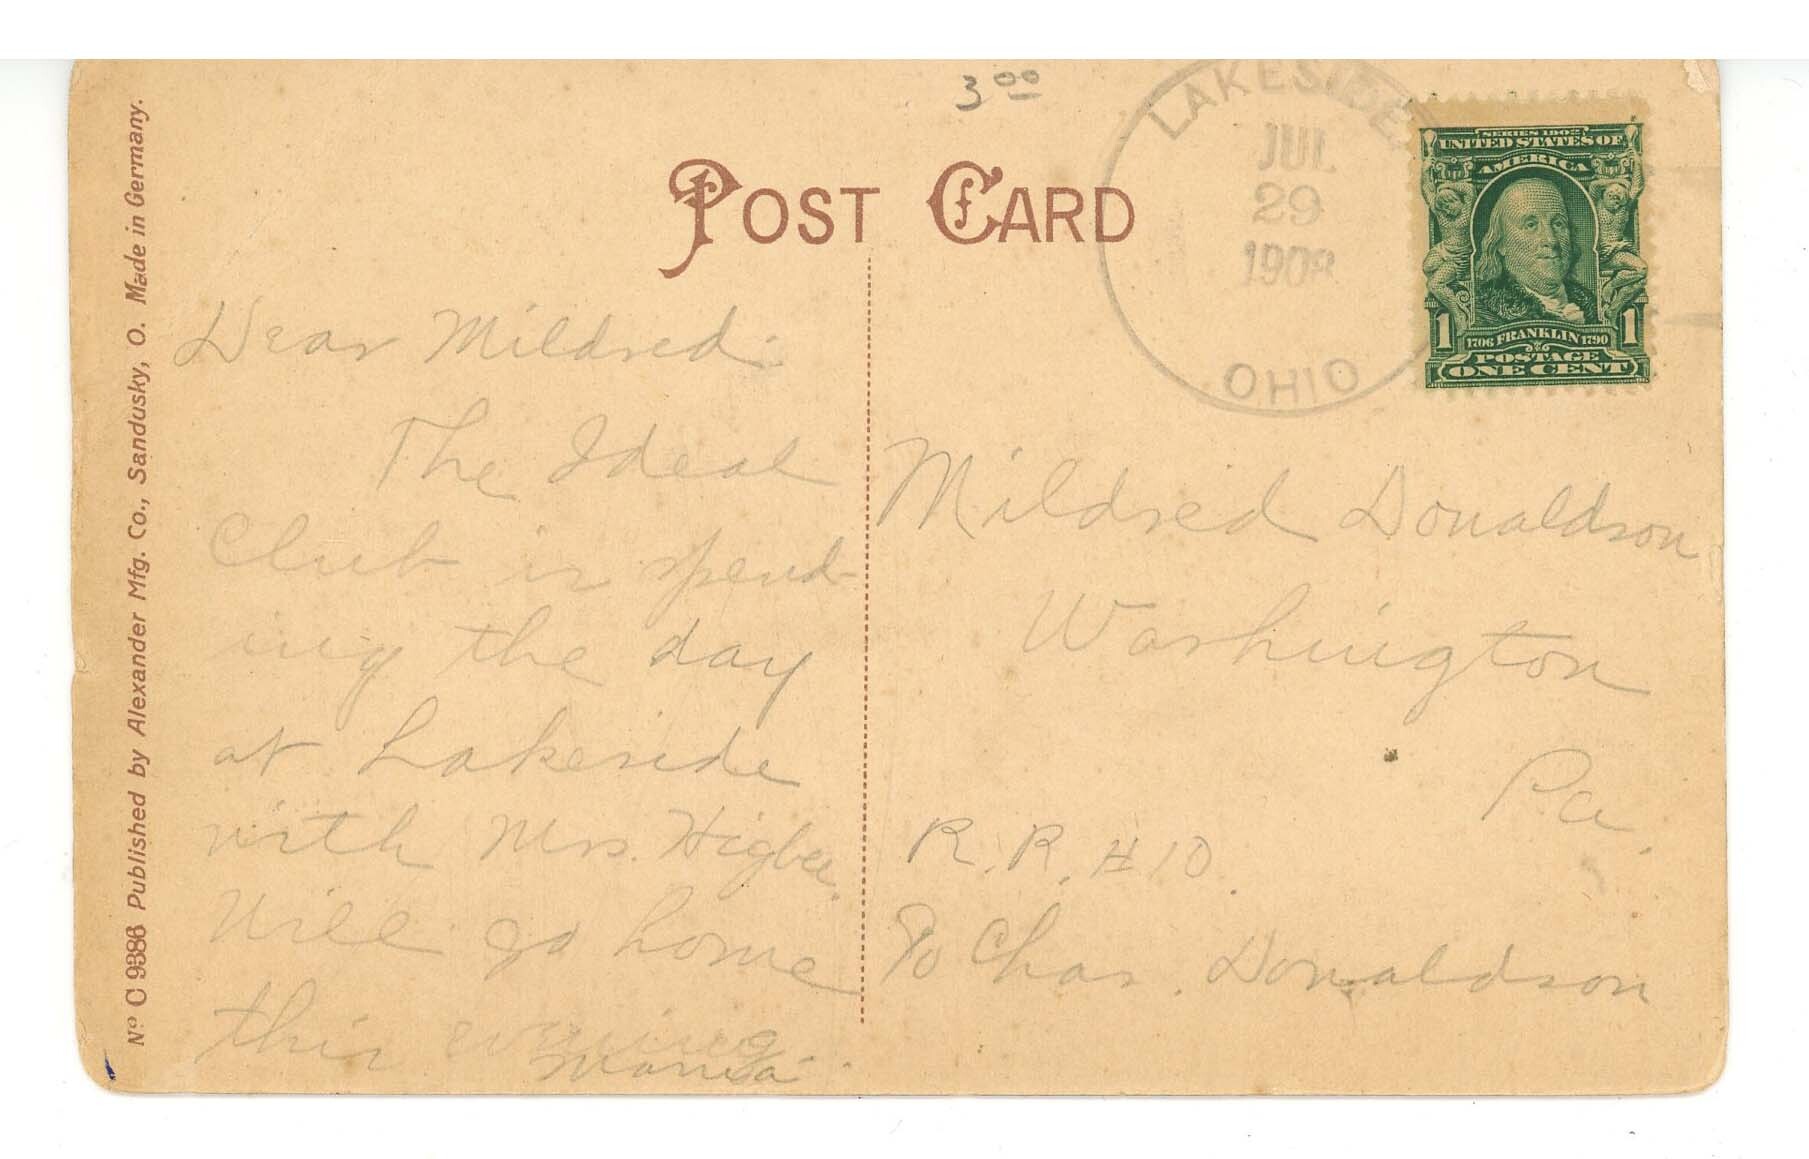 3 00
POST CARD
LAKESIDE
JUL
29
1908
OHIO
SERIES 1902
UNITED STATES OF
AMERICA
1 1706 FRANKLIN 1790 1
POSTAGE
ONE CENT
Dear Mildred:
The Ideal
Club is spend-
ing the day
at Lakeside
with Mrs. Higbee.
Will go home
this evening
Mama
Mildred Donaldson
Washington
Pa.
R. R. #10.
% Chas. Donaldson
No C 9386 Published by Alexander Mfg. Co., Sandusky, O. Made in Germany.